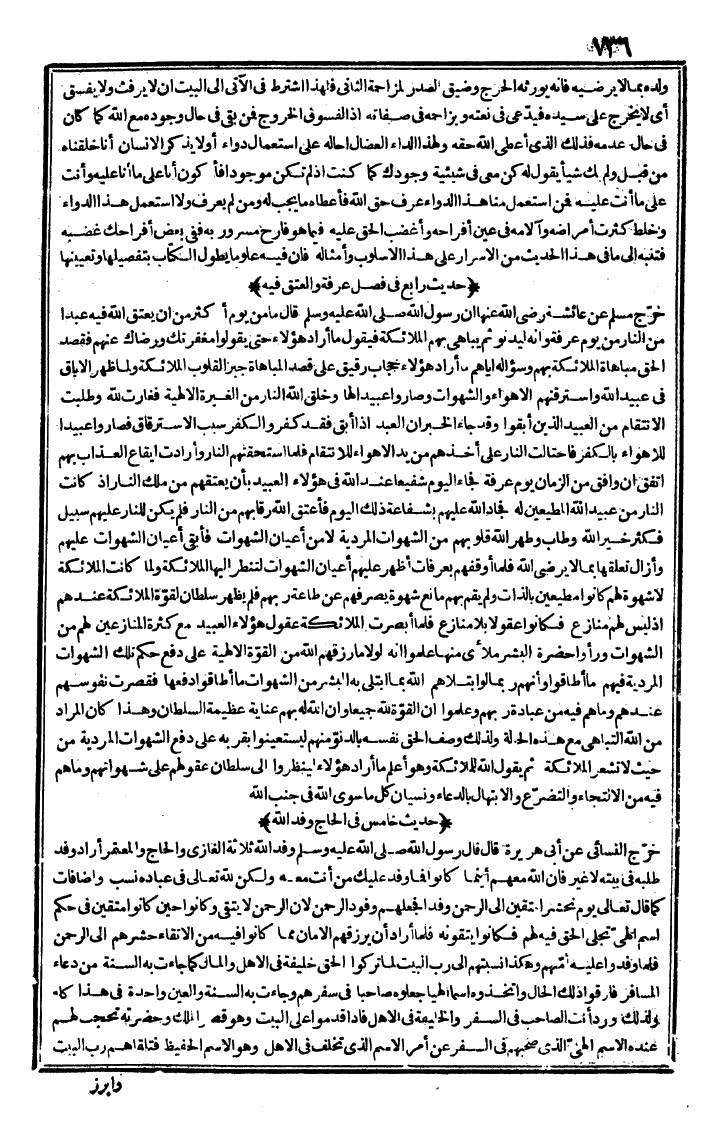 ٧٣٦
ولده بما لا يرضيه فانه يورثه الحرج وضيق الصدر لمزاحمة الثانى فلهذا اشترط فى الآتى الى البيت ان لا يرفث ولا يفسق
أى لا يخرج على سيده فيدّعى فى نعته ويزاحمه فى صفاته اذ الفسوق الخروج فمن بقى فى حال وجوده مع الله كما كان
فى حال عدمه فذلك الذى أعطى الله حقه ولهذا الداء العضال احاله على استعمال دواء أولا يذكر الانسان أنا خلقناه
من قبل ولم يك شيأ يقول له كن معى فى شيئية وجودك كما كنت اذ لم تكن موجودا فأكون أنا على ما أنا عليه وأنت
على ما أنت عليه فمن استعمل منا هذا الدواء عرف حق الله فأعطاه ما يجب له ومن لم يعرف ولا استعمل هذا الدواء
وخلط كثرت أمراضه وآلامه فى عين أفراحه وأغضب الحق عليه فيما هو فارح مسرور به ففى بعض أفراحك غضبه
فتنبه الى ما فى هذا الحديث من الاسرار على هذا الاسلوب وأمثاله فان فيه علوما يطول الكتاب بتفصيلها وتعيينها
﴿حديث رابع فى فضل عرفة والعتق فيه﴾
خرّج مسلم عن عائشة رضى الله عنها ان رسول الله صلى الله عليه وسلم قال ما من يوم أكثر من ان يعتق الله فيه عبدا
من النار من يوم عرفة وانه ليدنو ثم يباهى بهم الملائكة فيقول ما أراد هؤلاء حتى يقولوا مغفرتك ورضاك عنهم فقصد
الحق مباهاة الملائكة بهم وسؤاله اياهم ما أراد هؤلاء حجاب رقيق على قصد المباهاة جبر القلوب الملائكة ولما ظهر الاباق
فى عبيد الله واسترقتهم الاهواء والشهوات وصاروا عبيدا لها وخلق الله النار من الغيرة الالهية فغارت لله وطلبت
الانتقام من العبيد الذين أبقوا وقد جاء الخبر ان العبد اذا أبق فقد كفر والكفر سبب الاسترقاق فصاروا عبيدا
للاهواء بالكفر فاحتالت النار على أخذهم من يد الاهواء للانتقام فلما استحقتهم النار وأرادت ايقاع العذاب بهم
اتفق ان وافق من الزمان يوم عرفة فجاء اليوم شفيعا عند الله فى هؤلاء العبيد بأن يعتقهم من ملك النار اذ كانت
النار من عبيد الله المطيعين له فجاد الله عليهم بشفاعة ذلك اليوم فأعتق الله رقابهم من النار فلم يكن للنار عليهم سبيل
فكثر خير الله وطاب وطهر الله قلوبهم من الشهوات المردية لا من أعيان الشهوات فأبقى أعيان الشهوات عليهم
وأزال تعلقها بما لا يرضى الله فلما أوقفهم بعرفات أظهر عليهم أعيان الشهوات لتنظر اليها الملائكة ولما كانت الملائكة
لا شهوة لهم كانوا مطيعين بالذات ولم يقم بهم مانع شهوة يصرفهم عن طاعة ربهم فلم يظهر سلطان لقوّة الملائكة عندهم
اذ ليس لهم منازع فكانوا عقولا بلا منازع فلما أبصرت الملائكة عقول هؤلاء العبيد مع كثرة المنازعين لهم من
الشهوات ورأوا حضرة البشر ملأى منها علموا انه لولا ما رزقهم الله من القوّة الالهية على دفع حكم تلك الشهوات
المردية فيهم ما أطاقوا وأنهم ربما لو ابتلاهم الله بما ابتلى به البشر من الشهوات ما أطاقوا دفعها فقصرت نفوسهم
عندهم وما هم فيه من عبادة ربهم وعلموا ان القوّة لله جميعا وان الله له بهم عناية عظيمة السلطان وهذا كان المراد
من الله التباهى مع هذه الحالة ولذلك وصف الحق نفسه بالدنوّ منهم ليستعينوا بقربه على دفع الشهوات المردية من
حيث لا تشعر الملائكة ثم يقول الله للملائكة وهو أعلم ما أراد هؤلاء لينظروا الى سلطان عقولهم على شهواتهم وما هم
فيه من الالتجاء والتضرّع والابتهال بالدعاء ونسيان كل ما سوى الله فى جنب الله
﴿حديث خامس فى الحاج وفد الله﴾
خرّج النسائى عن أبى هريرة قال قال رسول الله صلى الله عليه وسلم وفد الله ثلاثة الغازى والحاج والمعتمر أراد وفد
طلبه فى بيته لا غير فان الله معهم أينما كانوا فما وفد عليك من أنت معه ولكن لله تعالى فى عباده نسب واضافات
كما قال تعالى يوم نحشر المتقين الى الرحمن وفدا فجعلهم وفود الرحمن لان الرحمن لا يتقى وكانوا حين كانوا متقين فى حكم
اسم الهىّ تجلى الحق فيه لهم فكانوا يتقونه فلما أراد أن يرزقهم الامان مما كانوا فيه من الاتقاء حشرهم الى الرحمن
فلما وفدوا عليه أمنهم وهكذا نسبتهم الى رب البيت لما تركوا الحق خليفة فى الاهل والمال كما جاءت به السنة من دعاء
المسافر فارقوا ذلك الحال واتخذوه اسما الهيا جعلوه صاحبا فى سفرهم وجاءت به السنة والعين واحدة فى هذا كله
ولذلك ورد أنت الصاحب فى السفر والخليفة فى الاهل فاذا قدموا على البيت وهو قصر الملك وحضرته تحجب لهم
عنده الاسم الهىّ الذى صحبهم فى السفر عن أمر الاسم الذى تخلف فى الاهل وهو الاسم الحفيظ فتلقاهم رب البيت
وابرز